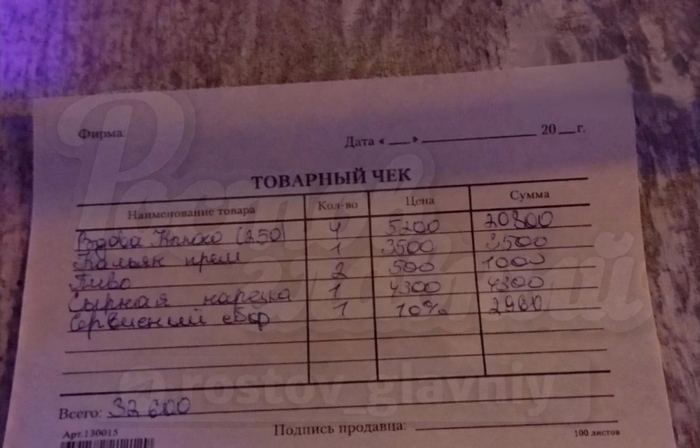 Фирма:
Дата « » 20 г.
ТОВАРНЫЙ ЧЕК
Наименование товара Кол-во Цена Сумма
Вдова Клико (250) 4 5200 20800
Кальян прем 1 3500 3500
Пиво 2 500 1000
Сырная нарезка 1 4300 4300
Сервисный сбор 1 10% 2960
Всего: 32600
Подпись продавца:
Арт.130015
100 листов
Ростов Главный
rostov_glavniy